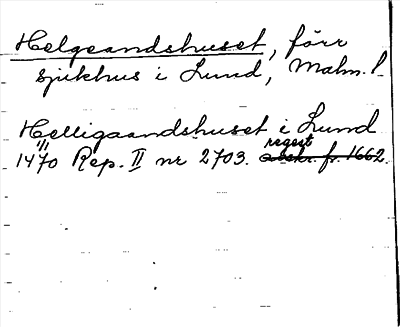 Helgeandshuset, förr
sjukhus i Lund, Malm. l.
Helligaandshuset i Lund
1/1 regest
1470 Rep. II nr 2703. avskr. fr. 1662.